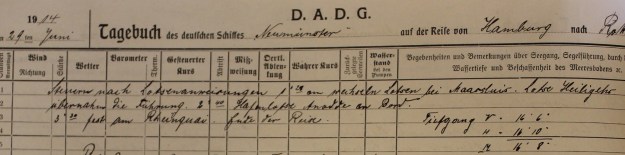 D. A. D. G.
1914
29ten Juni Tagebuch des deutschen Schiffes Neumünster auf der Reise von Hamburg nach
Wind Wetter Barometer Gesteuerter Kurs Mißweisung Oertl. Ablenkung Wahrer Kurs Wasserstand bei den Pumpen Begebenheiten und Bemerkungen über Seegang, Segelführung, durch
Richtung Stärke Therm. Wassertiefe und Beschaffenheit des Meeresbodens
1 Steuern nach Lotsenanweisungen 1 20 an wechseln Lotsen bei Maassluis. Lotse
2 übernahm die Führung. 2 Hafenlotse an Bord.
3 3 30 fest am Rheinquai Ende der Reise. Tiefgang v. 16' 6"
4 h. 16' 10"
5 M 16' 8"